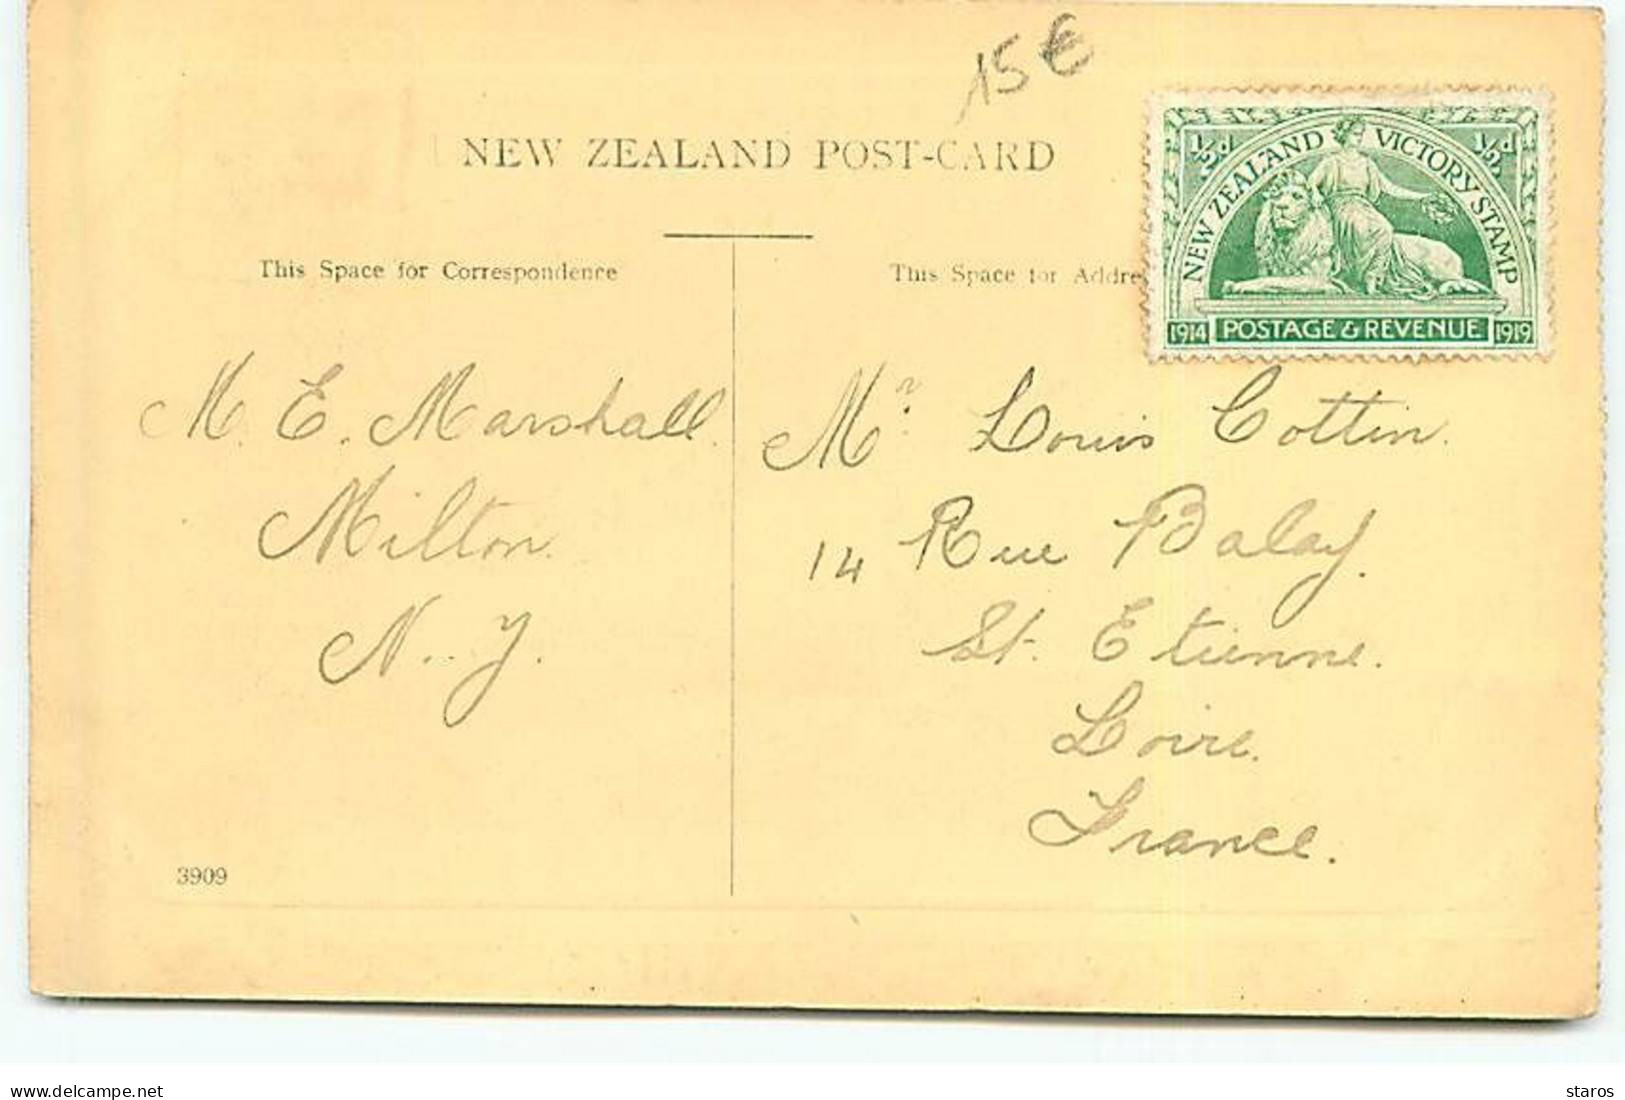 15€
NEW ZEALAND POST-CARD
½d ½d
NEW ZEALAND VICTORY STAMP
1914 POSTAGE & REVENUE 1919
This Space for Correspondence
This Space for Addre
M. E. Marshall.
Milton.
N. Z.
Mr. Louis Cottin.
14 Rue Balay.
St. Etienne.
Loire.
France.
3909
delcampe.net
staros